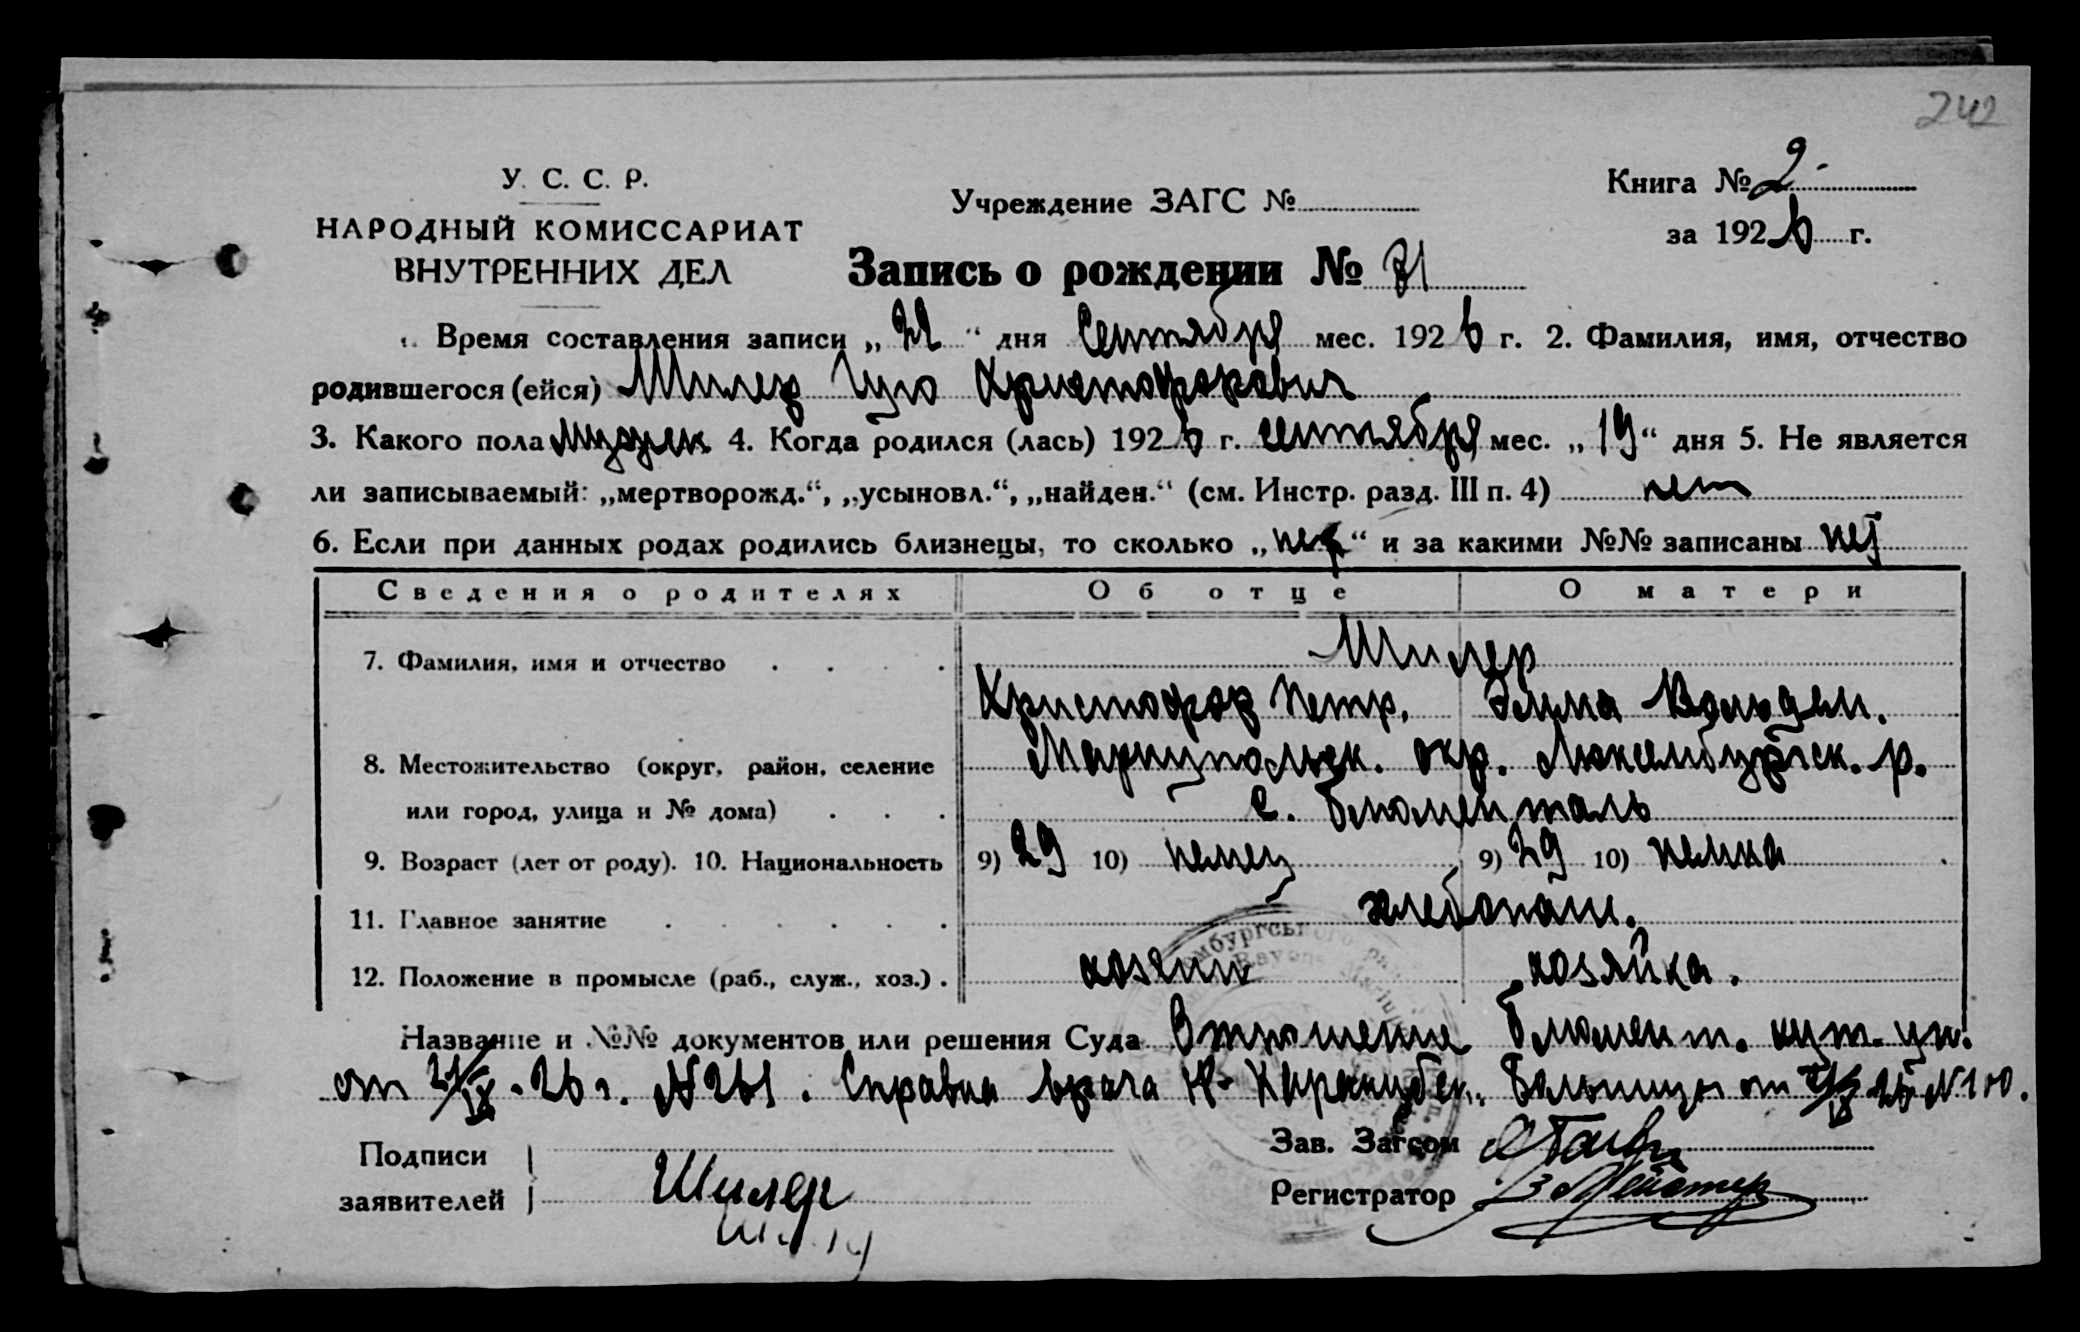 242
У. С. С. Р.
НАРОДНЫЙ КОМИССАРИАТ
ВНУТРЕННИХ ДЕЛ
Учреждение ЗАГС №
Книга № 2
за 1926 г.
Запись о рождении № 71
1. Время составления записи „22“ дня Сентября мес. 1926 г. 2. Фамилия, имя, отчество
родившегося (ейся) Шилер Гуго Христофорович
3. Какого пола мужск. 4. Когда родился (лась) 1926 г. сентября мес. „19“ дня 5. Не является
ли записываемый: „мертворожд.“, „усыновл.“, „найден.“ (см. Инстр. разд. III п. 4) нет
6. Если при данных родах родились близнецы, то сколько „нет“ и за какими №№ записаны нет
Сведения о родителях Об отце О матери
7. Фамилия, имя и отчество Шилер
Христофор Петр. Элма Вольдем.
8. Местожительство (округ, район, селение Мариупольск. окр. Люксембургск. р.
или город, улица и № дома) с. Блюменталь
9. Возраст (лет от роду). 10. Национальность 9) 29 10) немец 9) 29 10) немка
11. Главное занятие хлебопаш.
12. Положение в промысле (раб., служ., хоз.) хозяин хозяйка.
Название и №№ документов или решения Суда Отношение Блюмент.
от 21/IX-26 г. № 261. Справка врача Больницы от
Подписи
заявителей Шилер
Зав. Загсом
Регистратор